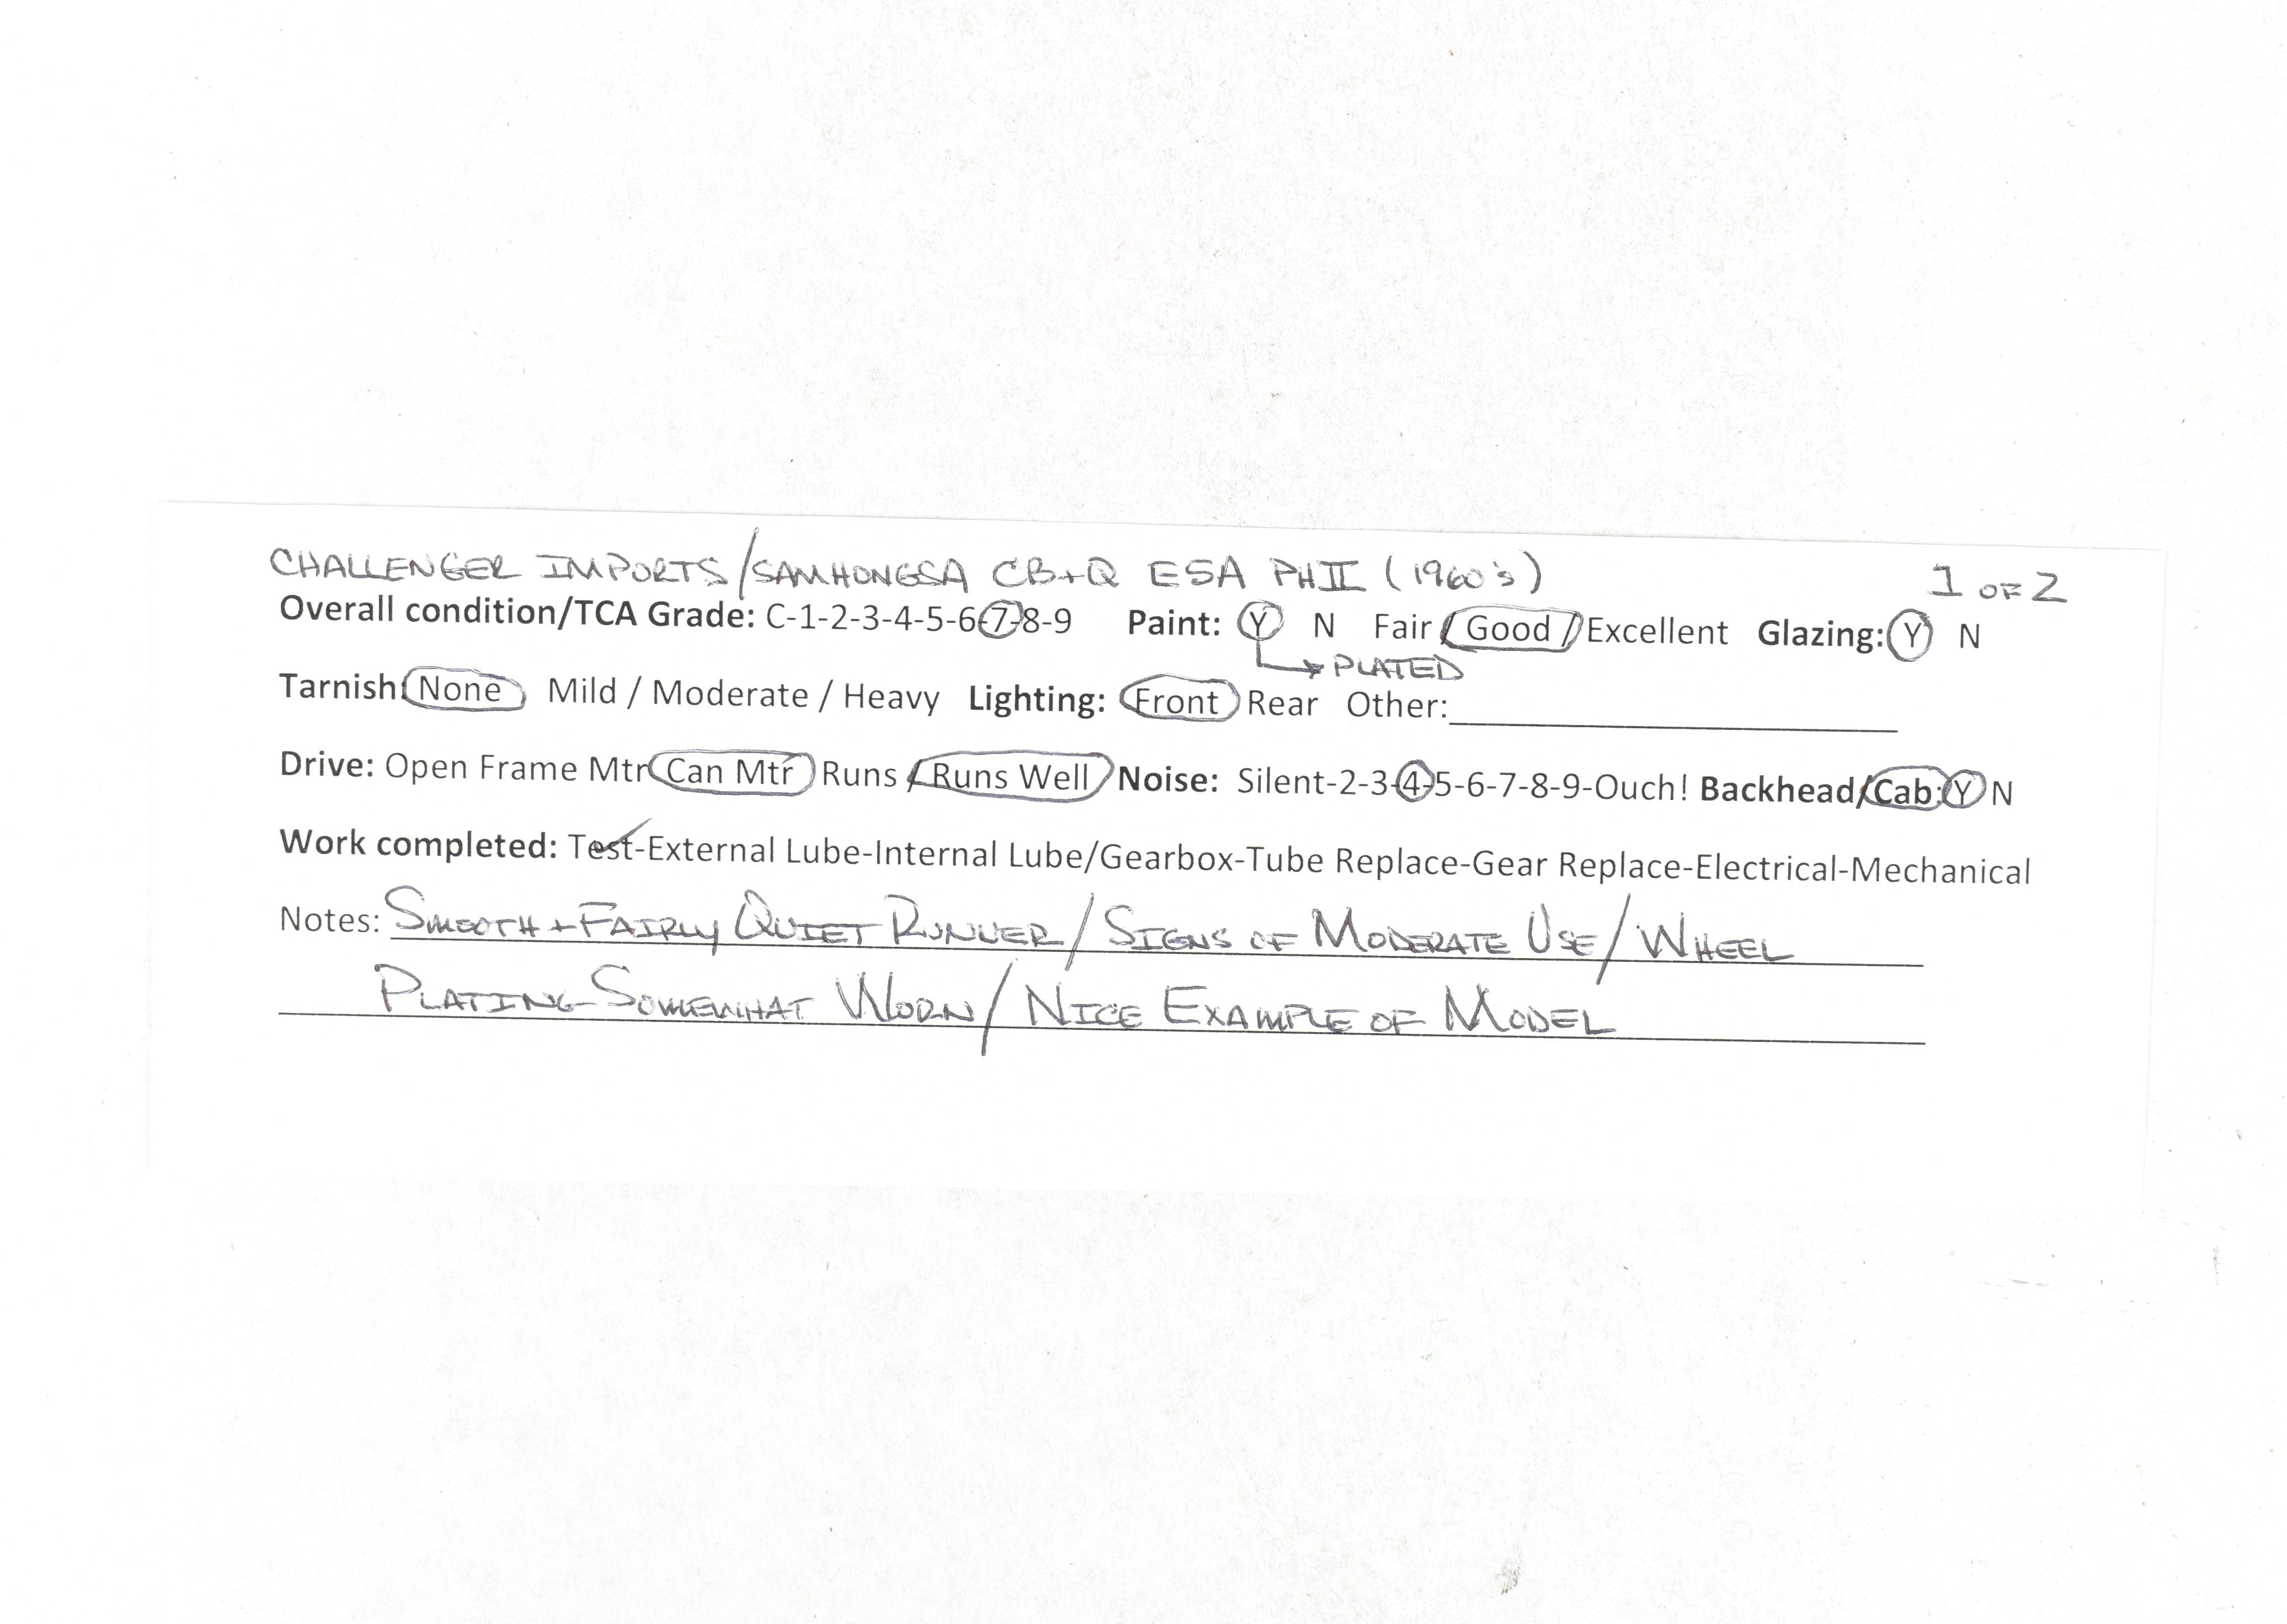 CHALLENGER IMPORTS/SAMHONGSA CB+Q E5A PH II (1960's) 1 OF 2
Overall condition/TCA Grade: C-1-2-3-4-5-6-7-8-9 Paint: Y N Fair / Good / Excellent Glazing: Y N
PLATED
Tarnish: None Mild / Moderate / Heavy Lighting: Front Rear Other:
Drive: Open Frame Mtr Can Mtr Runs / Runs Well Noise: Silent-2-3-4-5-6-7-8-9-Ouch! Backhead/Cab: Y N
Work completed: Test-External Lube-Internal Lube/Gearbox-Tube Replace-Gear Replace-Electrical-Mechanical
Notes: SMOOTH + FAIRLY QUIET RUNNER / SIGNS OF MODERATE USE / WHEEL
PLATING SOMEWHAT WORN / NICE EXAMPLE OF MODEL